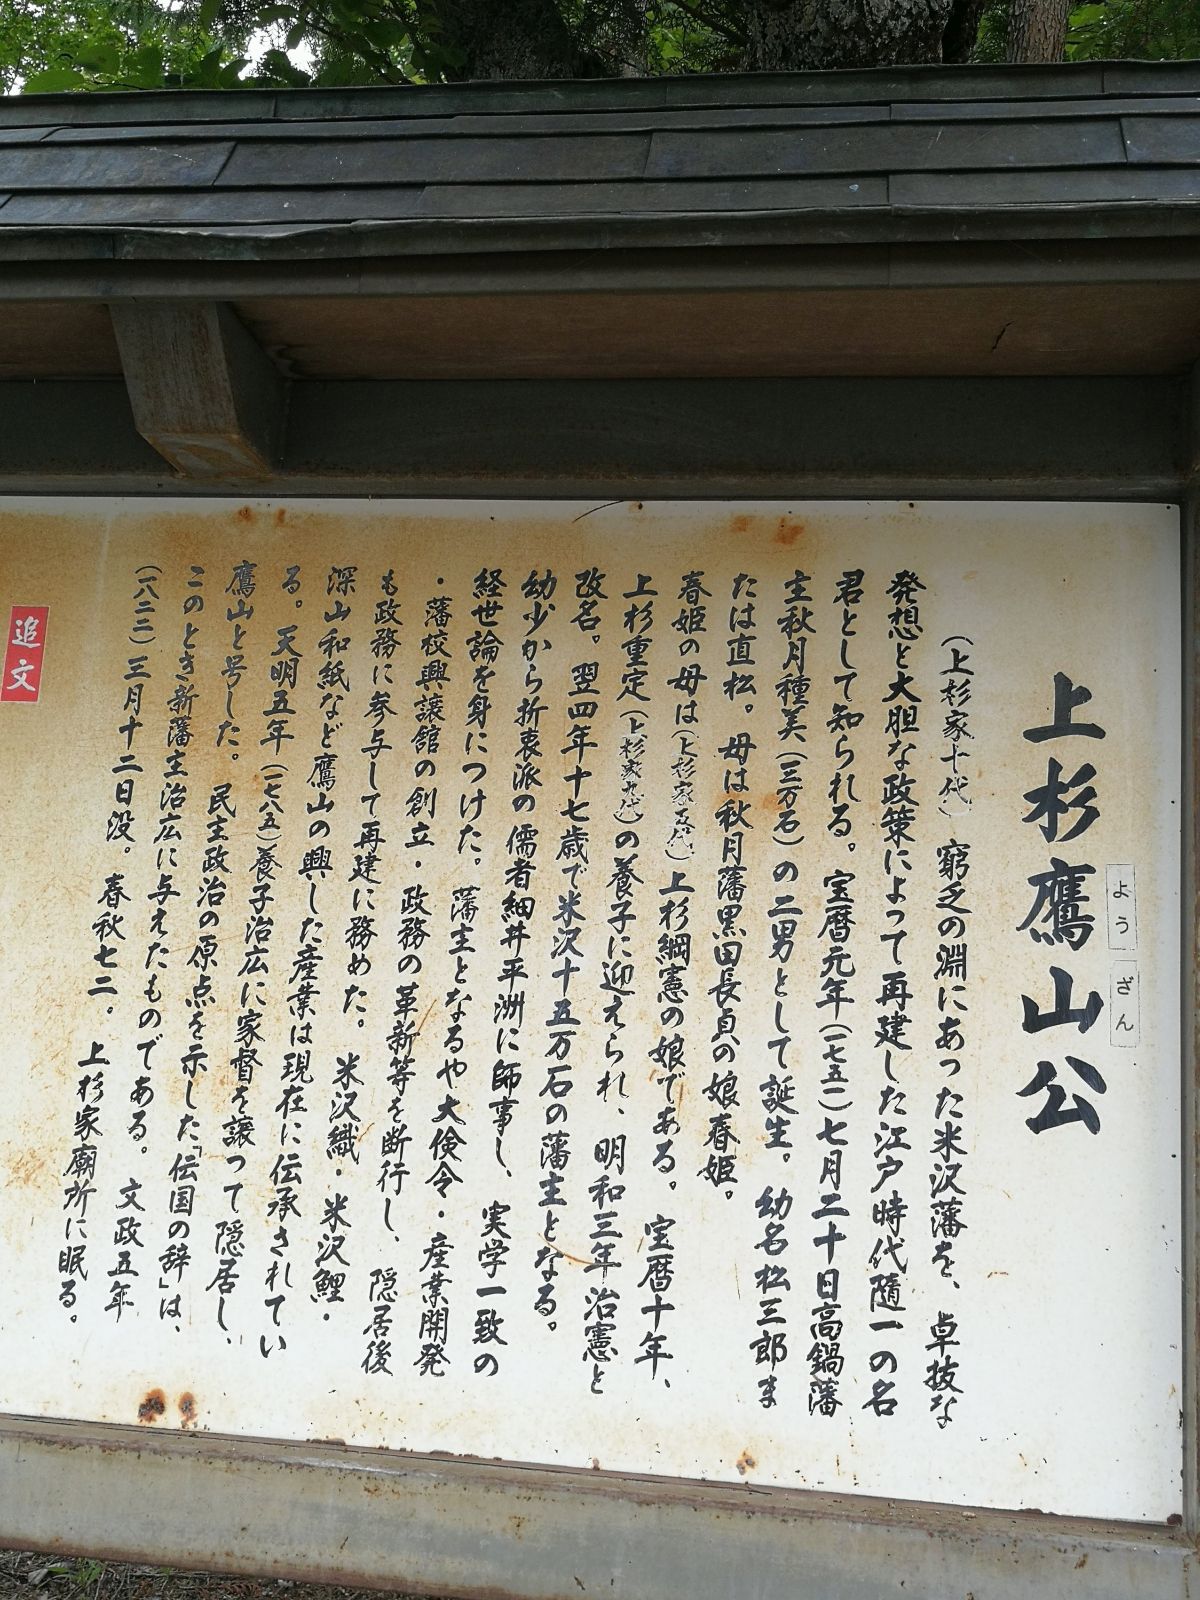 上杉鷹山公
ようざん
（上杉家十代）窮乏の淵にあった米沢藩を、卓抜な
発想と大胆な政策によって再建した江戸時代随一の名
君として知られる。宝暦元年（一七五一）七月二十日高鍋藩
主秋月種美（三万石）の二男として誕生。幼名松三郎ま
たは直松。母は秋月藩黒田長貞の娘春姫。
春姫の母は（上杉家五代）上杉綱憲の娘である。宝暦十年、
上杉重定（上杉家九代）の養子に迎えられ、明和三年治憲と
改名。翌四年十七歳で米沢十五万石の藩主となる。
幼少から折衷派の儒者細井平洲に師事し、実学一致の
経世論を身につけた。藩主となるや大倹令・産業開発
・藩校興譲館の創立・政務の革新等を断行し、隠居後
も政務に参与して再建に務めた。米沢織・米沢鯉・
深山和紙など鷹山の興した産業は現在に伝承されてい
る。天明五年（一七八五）養子治広に家督を譲って隠居し、
鷹山と号した。民主政治の原点を示した「伝国の辞」は、
このとき新藩主治広に与えたものである。文政五年
（一八二二）三月十二日没。春秋七二。上杉家廟所に眠る。
追文